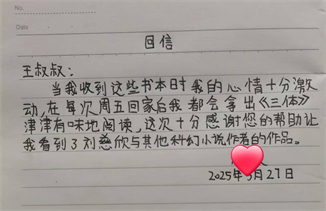 No.
Date
回信
王叔叔：
当我收到这些书本时我的心情十分激
动，在每次周五回家后我都会拿出《三体》
津津有味地阅读，这次十分感谢您的帮助让
我看到了刘慈欣与其他科幻小说作者的作品。
2025年 月27日